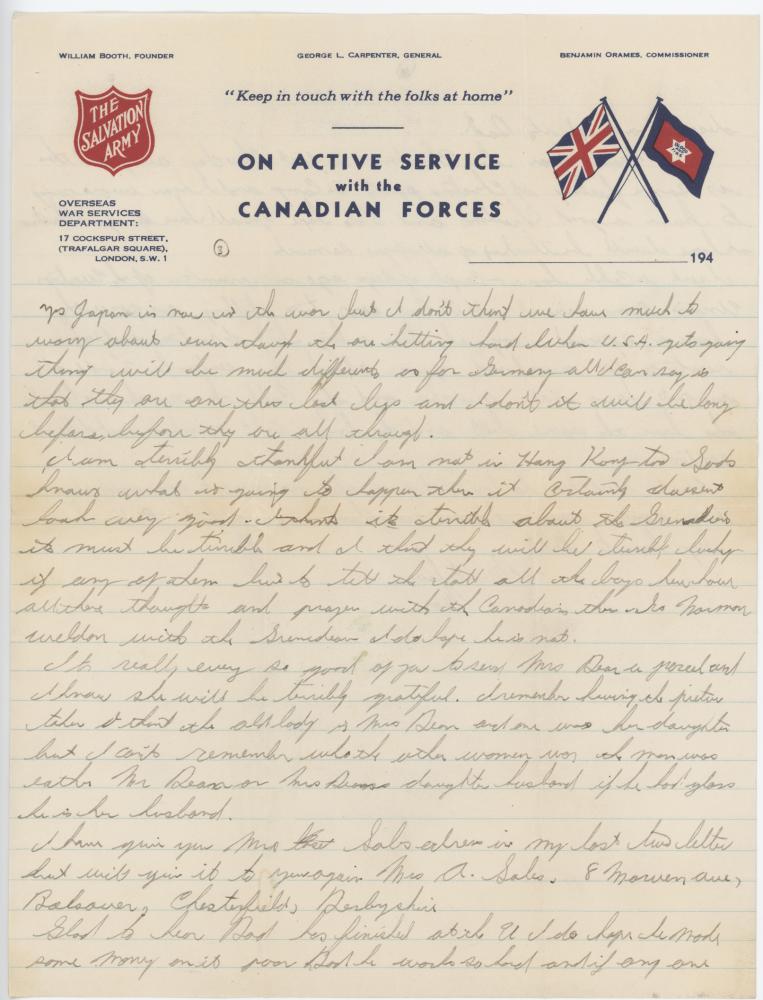 WILLIAM BOOTH, FOUNDER
GEORGE L. CARPENTER, GENERAL
BENJAMIN ORAMES, COMMISSIONER
THE
SALVATION
ARMY
"Keep in touch with the folks at home"
ON ACTIVE SERVICE
with the
CANADIAN FORCES
BLOOD
AND
FIRE
OVERSEAS
WAR SERVICES
DEPARTMENT:
17 COCKSPUR STREET,
(TRAFALGAR SQUARE),
LONDON, S.W. 1
3
194
yes Japan is now in the war but I don't think we have much to
worry about even though the are hitting hard when U.S.A. gets going
things will be much different as for Germany all I can say is
that they are one thes last legs and I don't it will be long
before, before they are all through.
I am terribly thankful I am not in Hong Kong too Gods
knows what is going to happen then it certainly doesent
look very good. I think its terrible about the Grenadiers
its must be terrible and I think they will be terribly lucky
if any of them live to tell the tall all the boys here have
all there thoughts and prayer with the Canadians there Is Norman
weldon with the Grenedean I do hope he is not.
It really every so good of you to send Mrs Dean a parcel and
I know she will be terribly grateful. I remember having the picture
taken I think the old lady is Mrs Dean and one was her daughter
but I can't remember who the other women was the man was
eather Mr Dean or Mrs Deans daughter husband if he had glass
he is her husband.
I have give you Mrs Sales adress in my last two letter
but will give it to you again Mrs A. Sales. 8 Morven ave,
Bolsover, Chesterfield, Derbyshire
Glad to hear Dad has finished at the U I do hope he made
some money on it poor Dad he works so hard and if any one